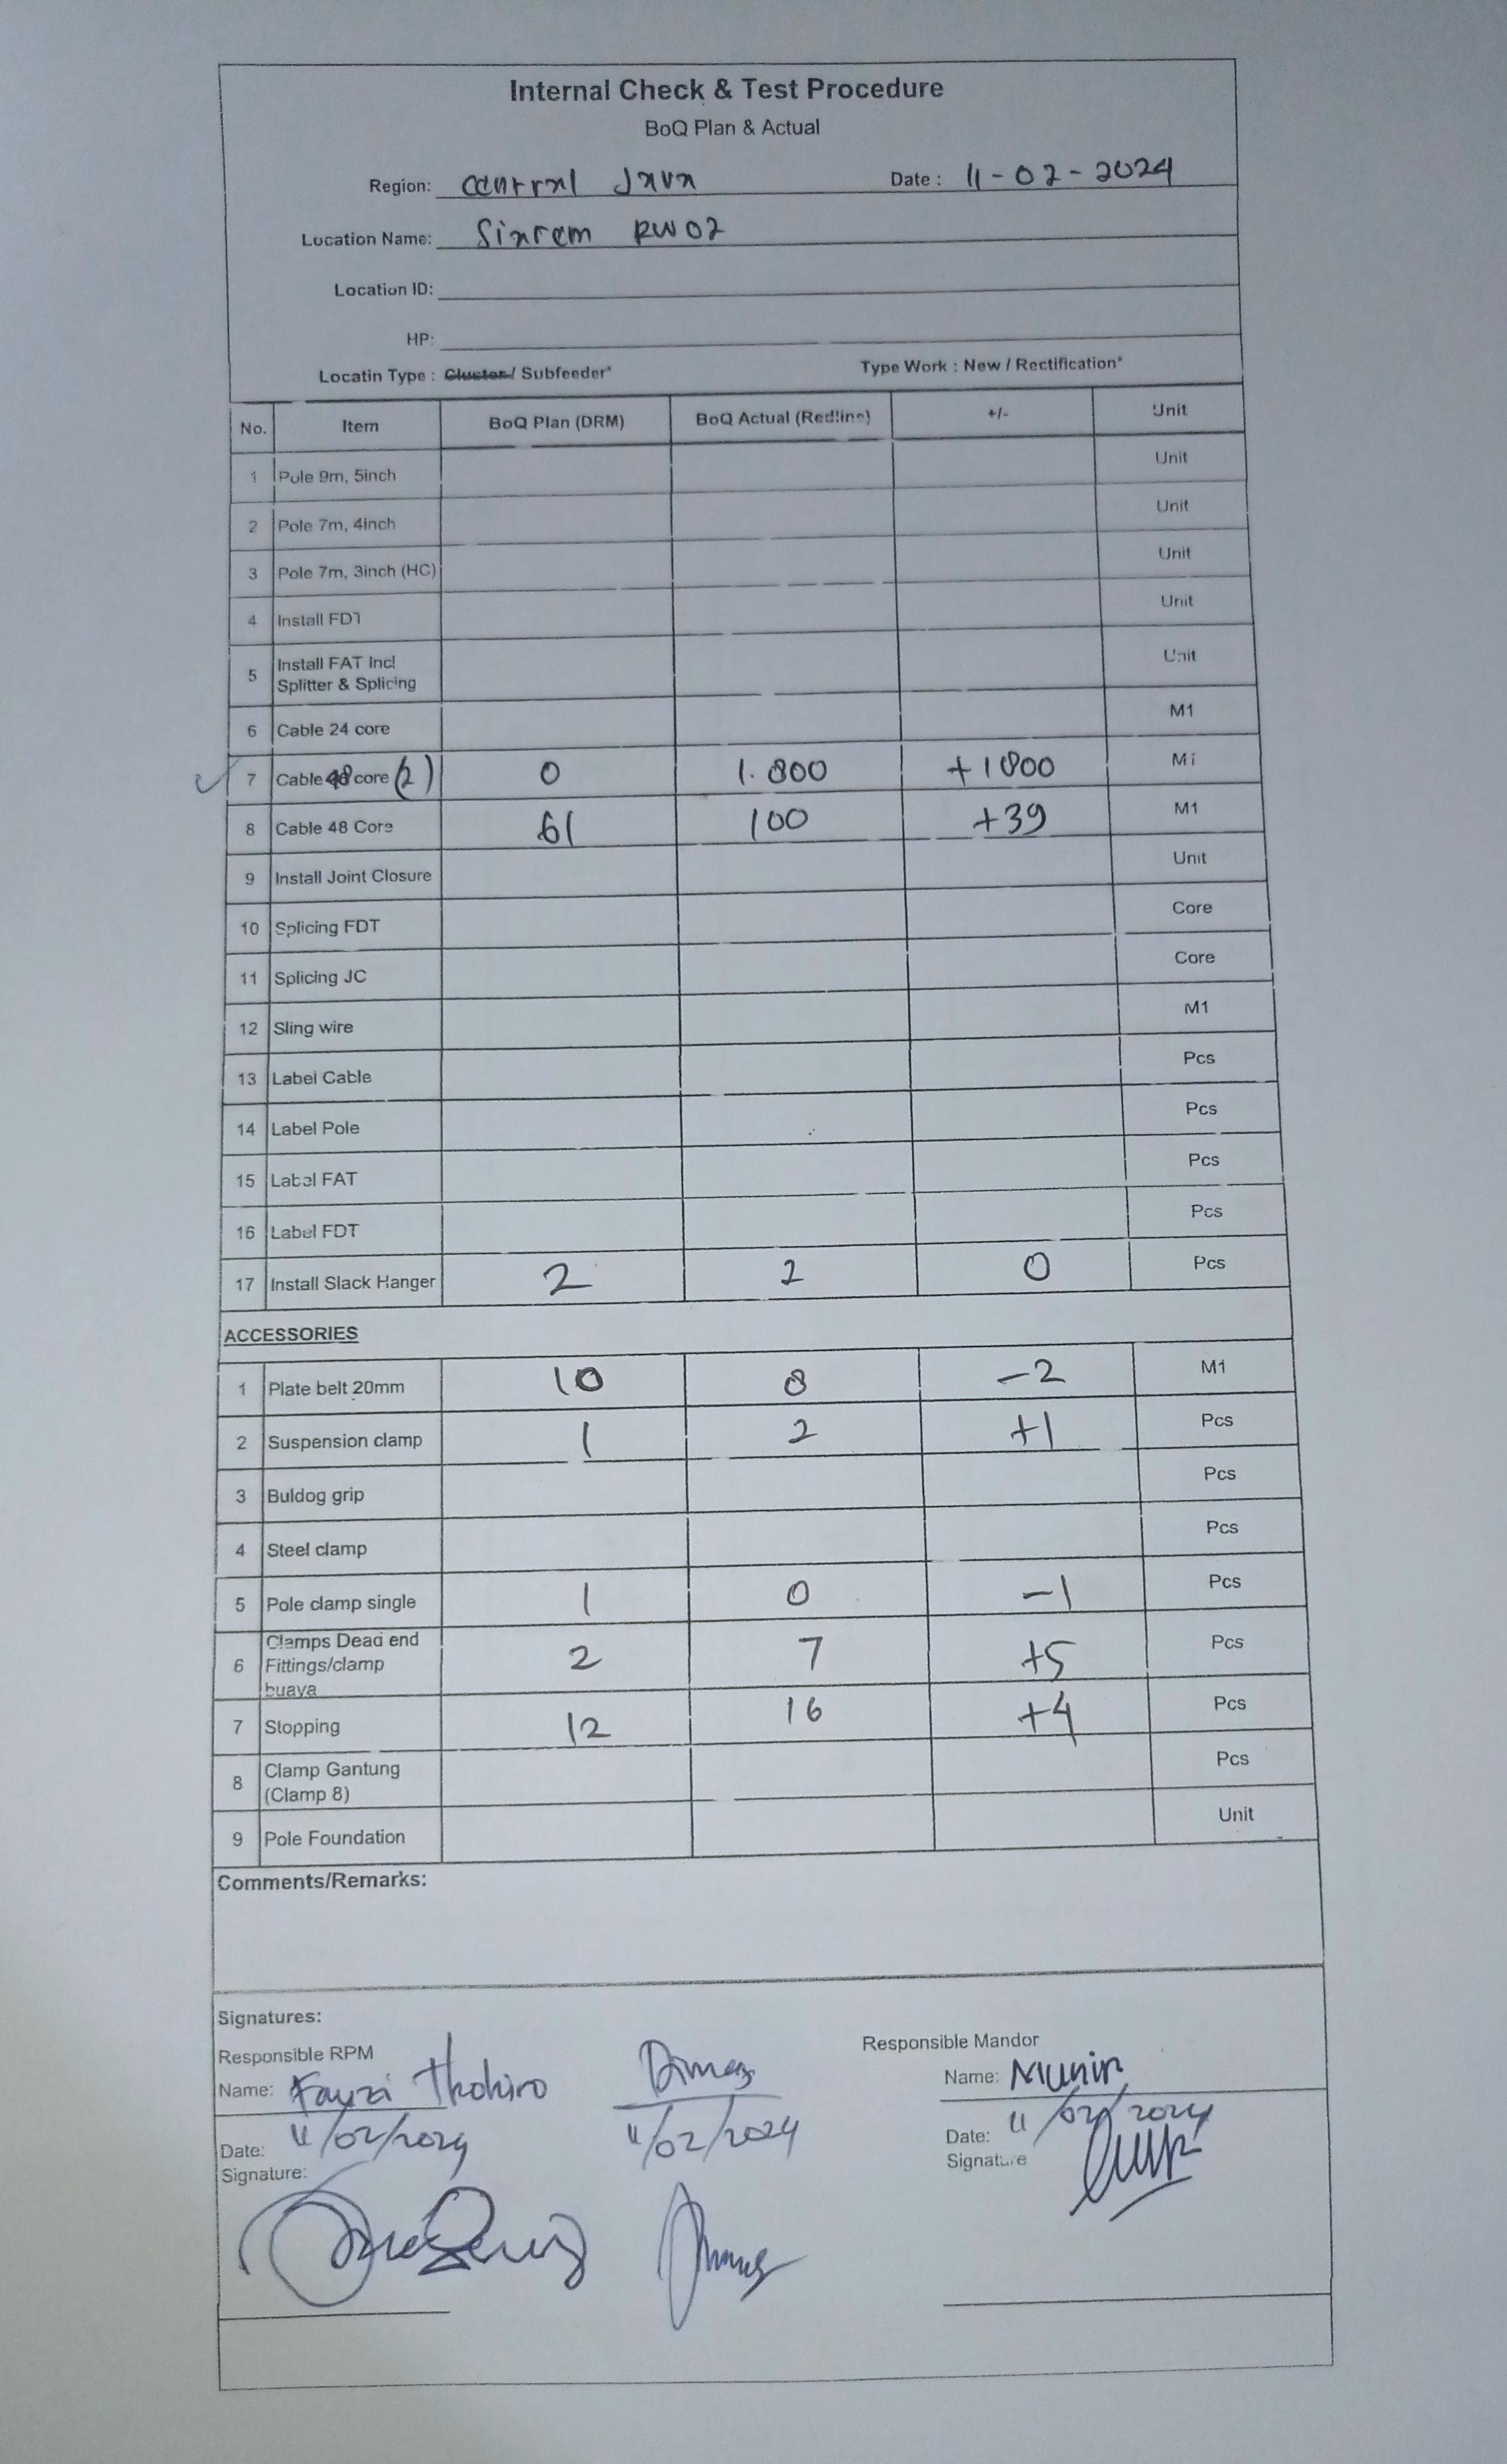 Internal Check & Test Procedure
BoQ Plan & Actual
Region: Central Java Date : 11-02-2024
Location Name: Siarem RW02
Location ID:
HP:
Locatin Type : Cluster / Subfeeder* Type Work : New / Rectification*
No. Item BoQ Plan (DRM) BoQ Actual (Redline) +/- Unit
1 Pole 9m, 5inch Unit
2 Pole 7m, 4inch Unit
3 Pole 7m, 3inch (HC) Unit
4 Install FDT Unit
5 Install FAT Incl Splitter & Splicing Unit
6 Cable 24 core M1
7 Cable 48 core (2) 0 1.800 +1800 M1
8 Cable 48 Core 61 100 +39 M1
9 Install Joint Closure Unit
10 Splicing FDT Core
11 Splicing JC Core
12 Sling wire M1
13 Label Cable Pcs
14 Label Pole Pcs
15 Label FAT Pcs
16 Label FDT Pcs
17 Install Slack Hanger 2 2 0 Pcs
ACCESSORIES
1 Plate belt 20mm 10 8 -2 M1
2 Suspension clamp 1 2 +1 Pcs
3 Buldog grip Pcs
4 Steel clamp Pcs
5 Pole clamp single 1 0 -1 Pcs
6 Clamps Dead end Fittings/clamp buaya 2 7 +5 Pcs
7 Stopping 12 16 +4 Pcs
8 Clamp Gantung (Clamp 8) Pcs
9 Pole Foundation Unit
Comments/Remarks:
Signatures:
Responsible RPM Responsible Mandor
Name: Fauzi Thohiro Dimas Name: Munir
Date: 11/02/2024 11/02/2024 Date: 11/02/2024
Signature: Signature